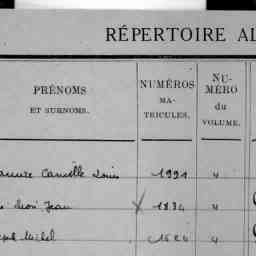 RÉPERTOIRE AL
PRÉNOMS
ET SURNOMS.
NUMÉROS
MA-
TRICULES.
NU-
MÉRO
du
VOLUME.
Camille Louis 1991 4
Jean X 1834 4
Michel 4